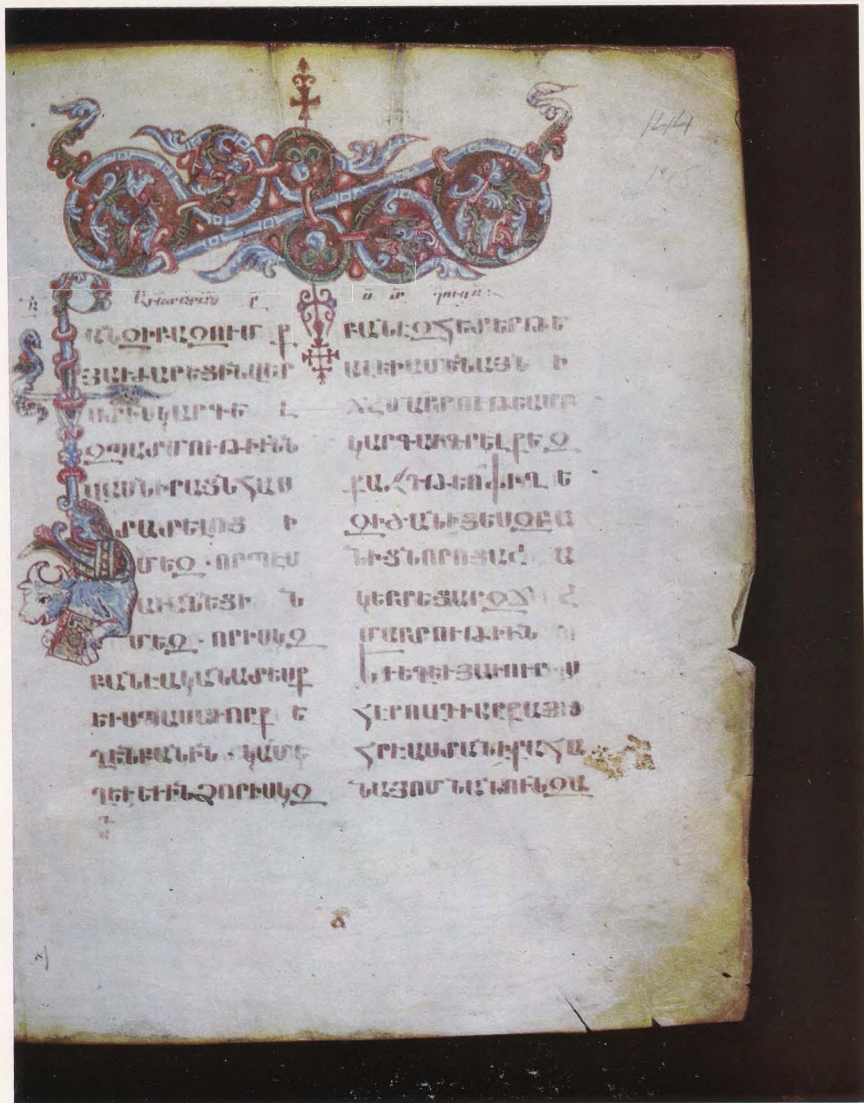 ԱՆԶԻԲԱԶՈՒՄ Ք
ՅԱՒԺԱՐԵՑԻՆՎԵՐ
ՍՏԻՆԿԱՐԳԵ Լ
ԶՊԱՏՄՈՒԹԻՒՆ
ՀԱՍՆԻՐԱՑՆՀԱՍ
ՏԱՏԵԼՈՑ Ի
ՄԵԶ · ՈՐՊԷՍ
ԱՒԱՆԴԵՑԻ Ն
ՄԵԶ · ՈՐԻՍԿԶ
ԲԱՆԷԱԿԱՆԱՏԵՍՔ
ԵՒՍՊԱՍԱՒՈՐՔ Ե
ՂԵՆԲԱՆԻՆ · ԿԱՄԵ
ՂԵՒԵՒԻՆՁՈՐԻՍԿԶ
ԲԱՆԷԶՀԵՏԵՐԹԵ
ԱԼԵՒԱՄԵՆԱՅՆ Ի
ՃՇՄԱՐՏՈՒԹԵԱՄԲ
ԿԱՐԳԱՒԳՐԵԼՔԵԶ
ՔԱՋԴԹԷՈՓԻՂ Ե
ԶԻԾԱՆԻՑԵՍԶԲԱ
ՆԻՑՆՈՐՈՑԱՇ Ա
ԿԵՐՏԵՑԱՐԶՃ Շ
ՄԱՐՏՈՒԹԻՒՆ
ԵՒԵՂԵՒՅԱՒՈՒՐՍ
ՀԵՐՈՎԴԻԱՐՔԱՅԻ
ՀՐԷԱՍՏԱՆԻՔԱՀԱ
ՆԱՅՈՄՆԱՆՈՒՆԶԱ